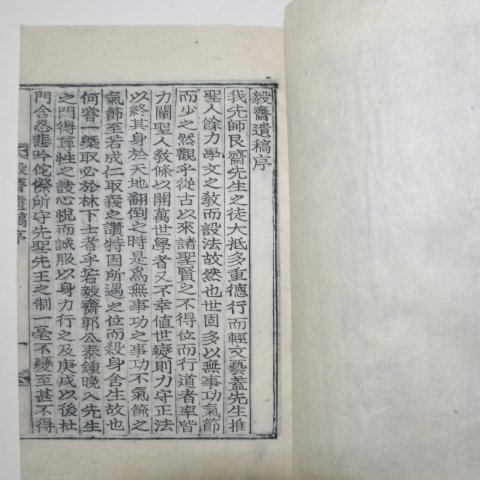 毅齋遺稿序
我先師艮齋先生之徒大抵多重德行而輕文藝蓋先生推
聖人餘力學文之敎而設法故然也世固多以無事功氣節
而少之然觀乎從古以來諸聖賢之不得位而行道者率皆
力闢聖人敎條以開萬世學者又不幸値世變則力守正法
以終其身於天地翻倒之時是爲無事功之事功不氣節之
氣節至若成仁取義之讚特因所遇之位而殺身舍生故也
何嘗一槩取必於林下士者乎若毅齋郭公泰鍾晚入先生
之門得尊性之訣心悅而誠服以身力行之及庚戌以後杜
門含忍悲吟侘傺所守先聖先王之制一毫不變至甚不得
毅齋遺稿序 一